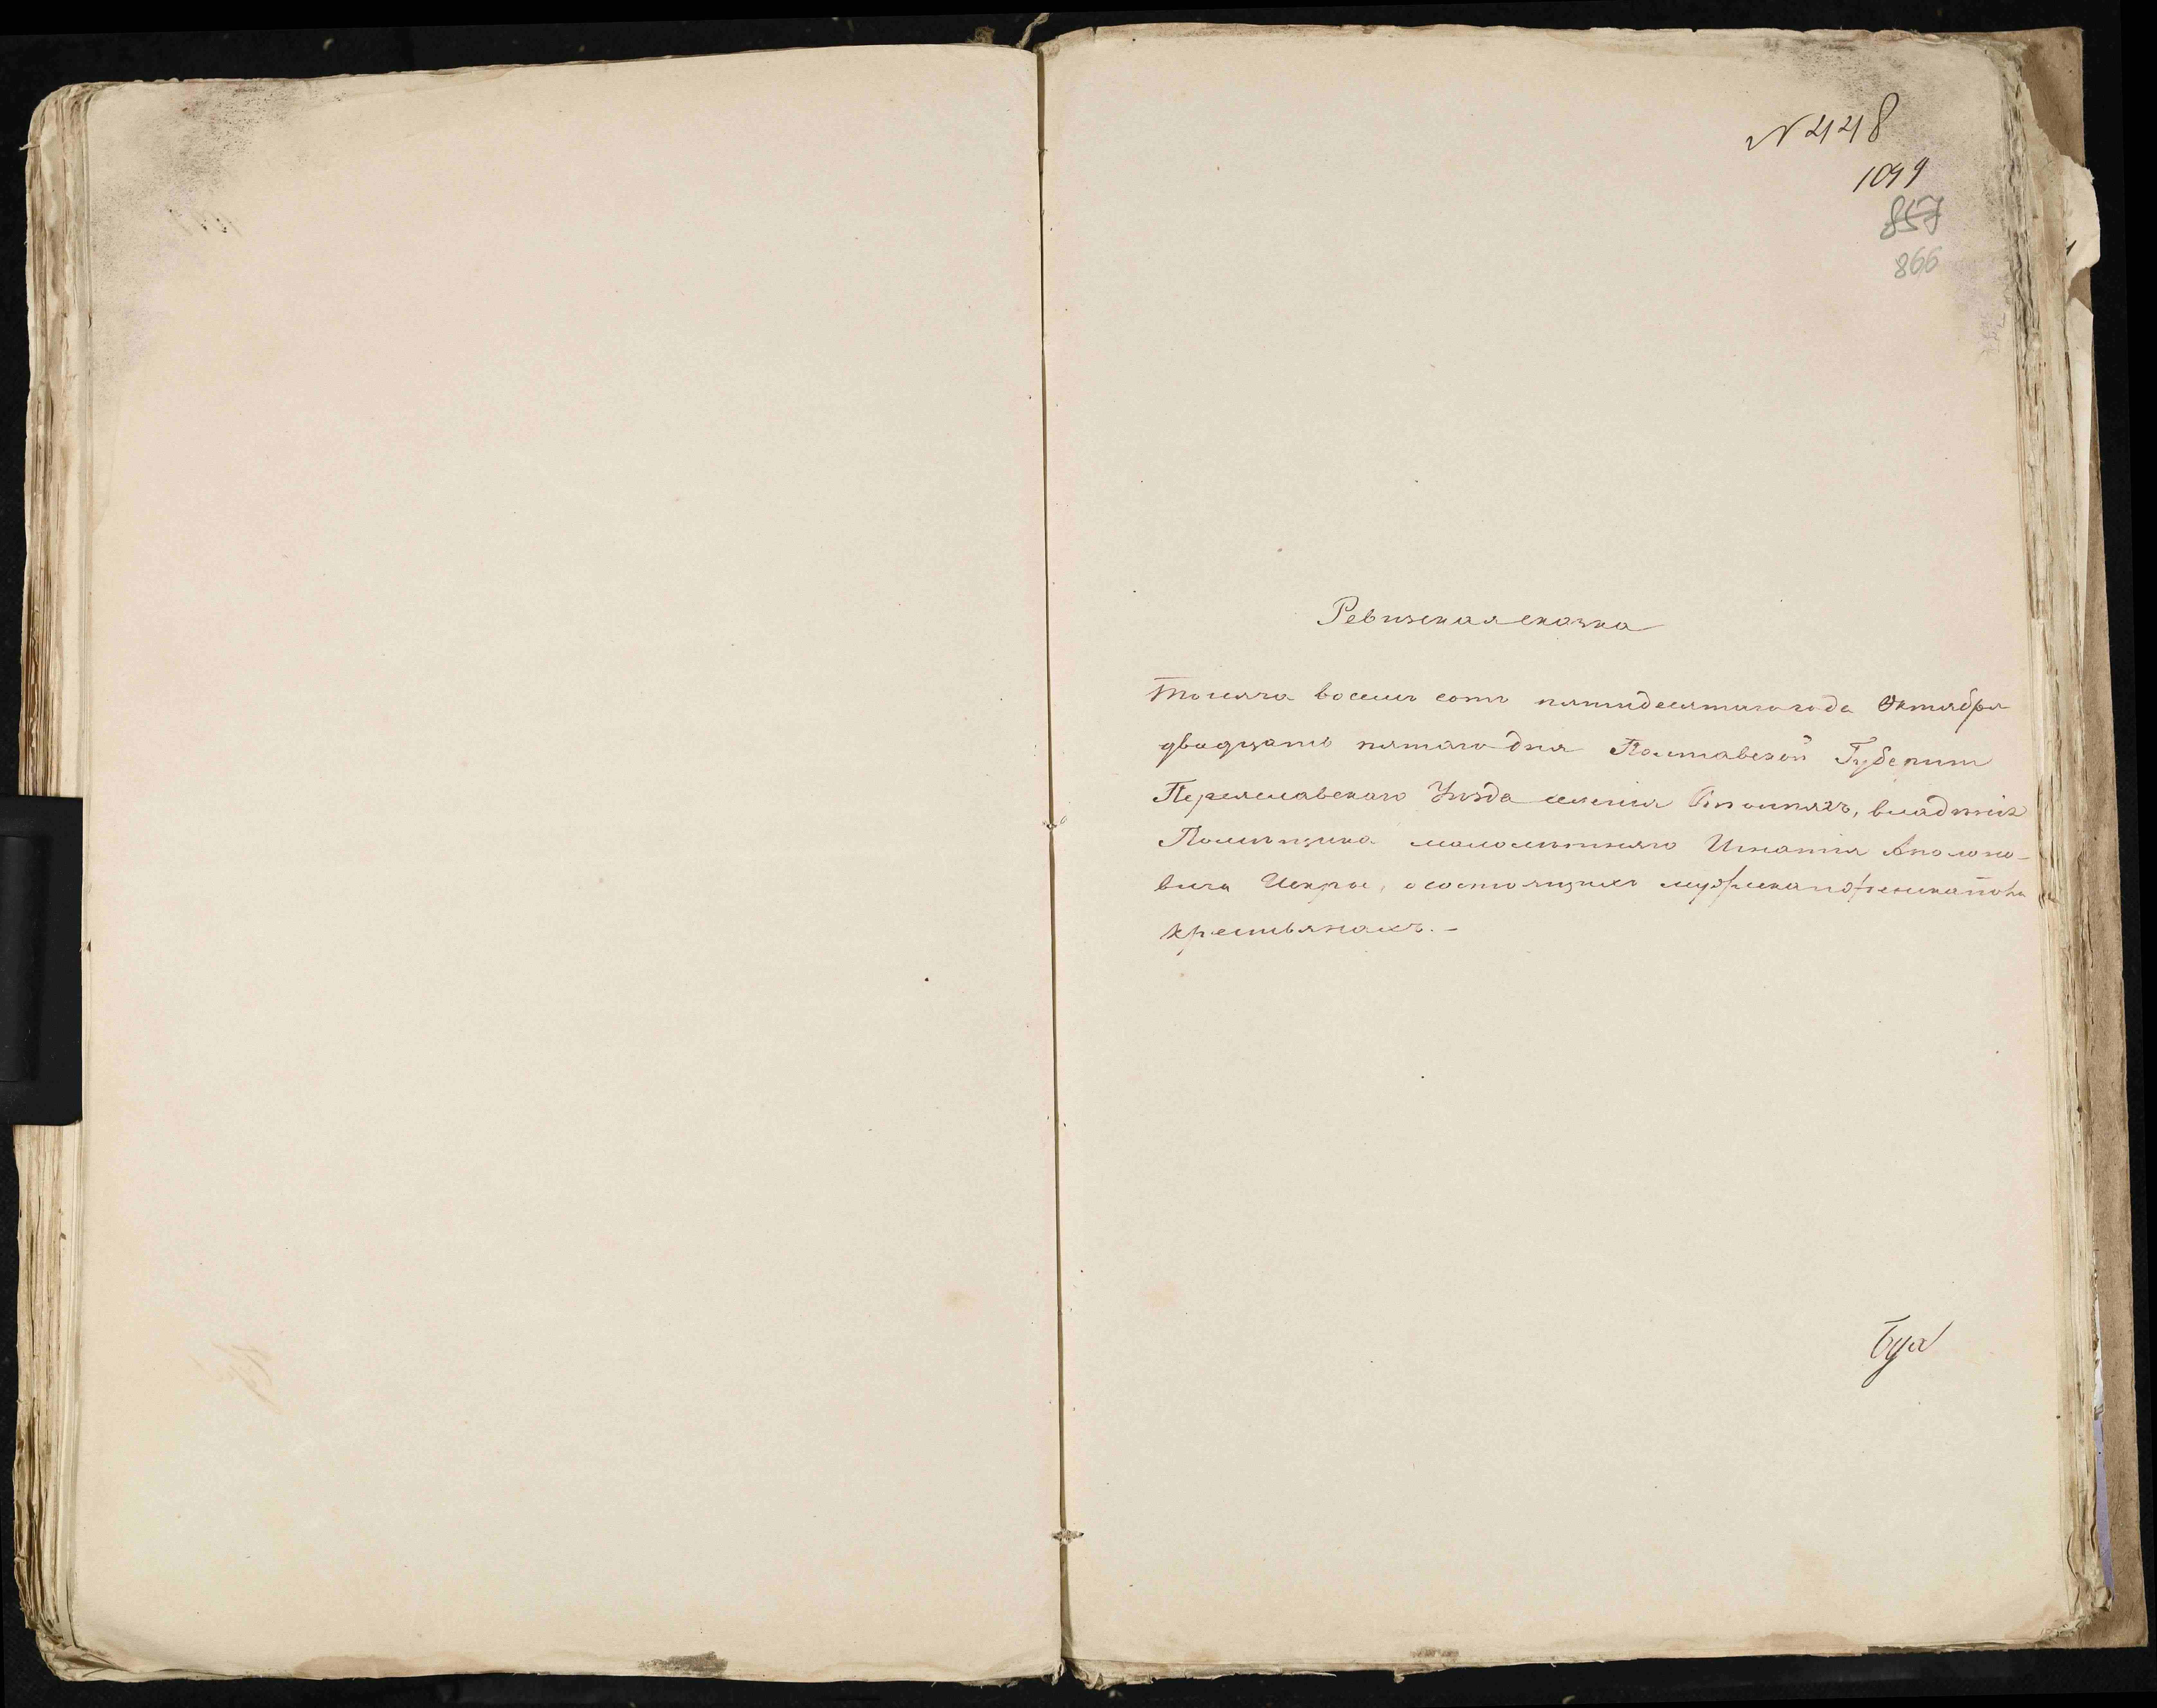 N 448
1099
857
866
Ревизская сказка
Тысяча восемь сотъ пятидесятаго года Октября
двадцать пятаго дня Полтавской Губернии
Переяславскаго Уезда селения владения
Помещика малолетняго Игнатия Аполоно-
вича Искры, о состоящихъ мужеска и женска пола
крестьянахъ. –